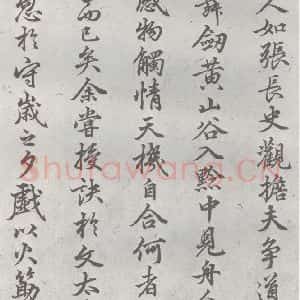 人如張長史觀擔夫争道
舞劒黄山谷入黔中見舟
感物觸情天機自合何者
而已矣余嘗授訣於文太
忽於守歲之夕戲以火筯
Shufawang.CN